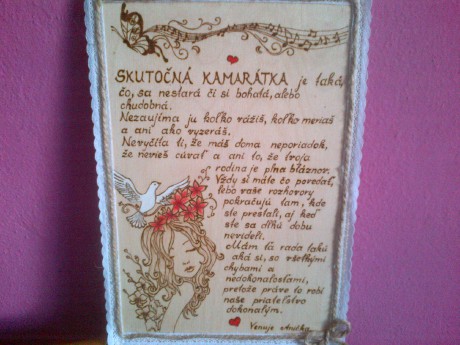 SKUTOČNÁ KAMARÁTKA je taká,
čo, sa nestará či si bohatá, alebo
chudobná.
Nezaujíma ju koľko vážiš, koľko meriaš
a ani ako vyzeráš.
Nevyčíta ti, že máš doma neporiadok,
že nevieš cúvať a ani to, že tvoja
rodina je plná bláznov.
Vždy si máte čo povedať,
lebo vaše rozhovory
pokračujú tam, kde
ste prestali, aj keď
ste sa dlhú dobu
nevideli.
Mám ťa rada takú
aká si, so všetkými
chybami a
nedokonalosťami,
pretože práve to robí
naše priateľstvo
dokonalým.
Venuje